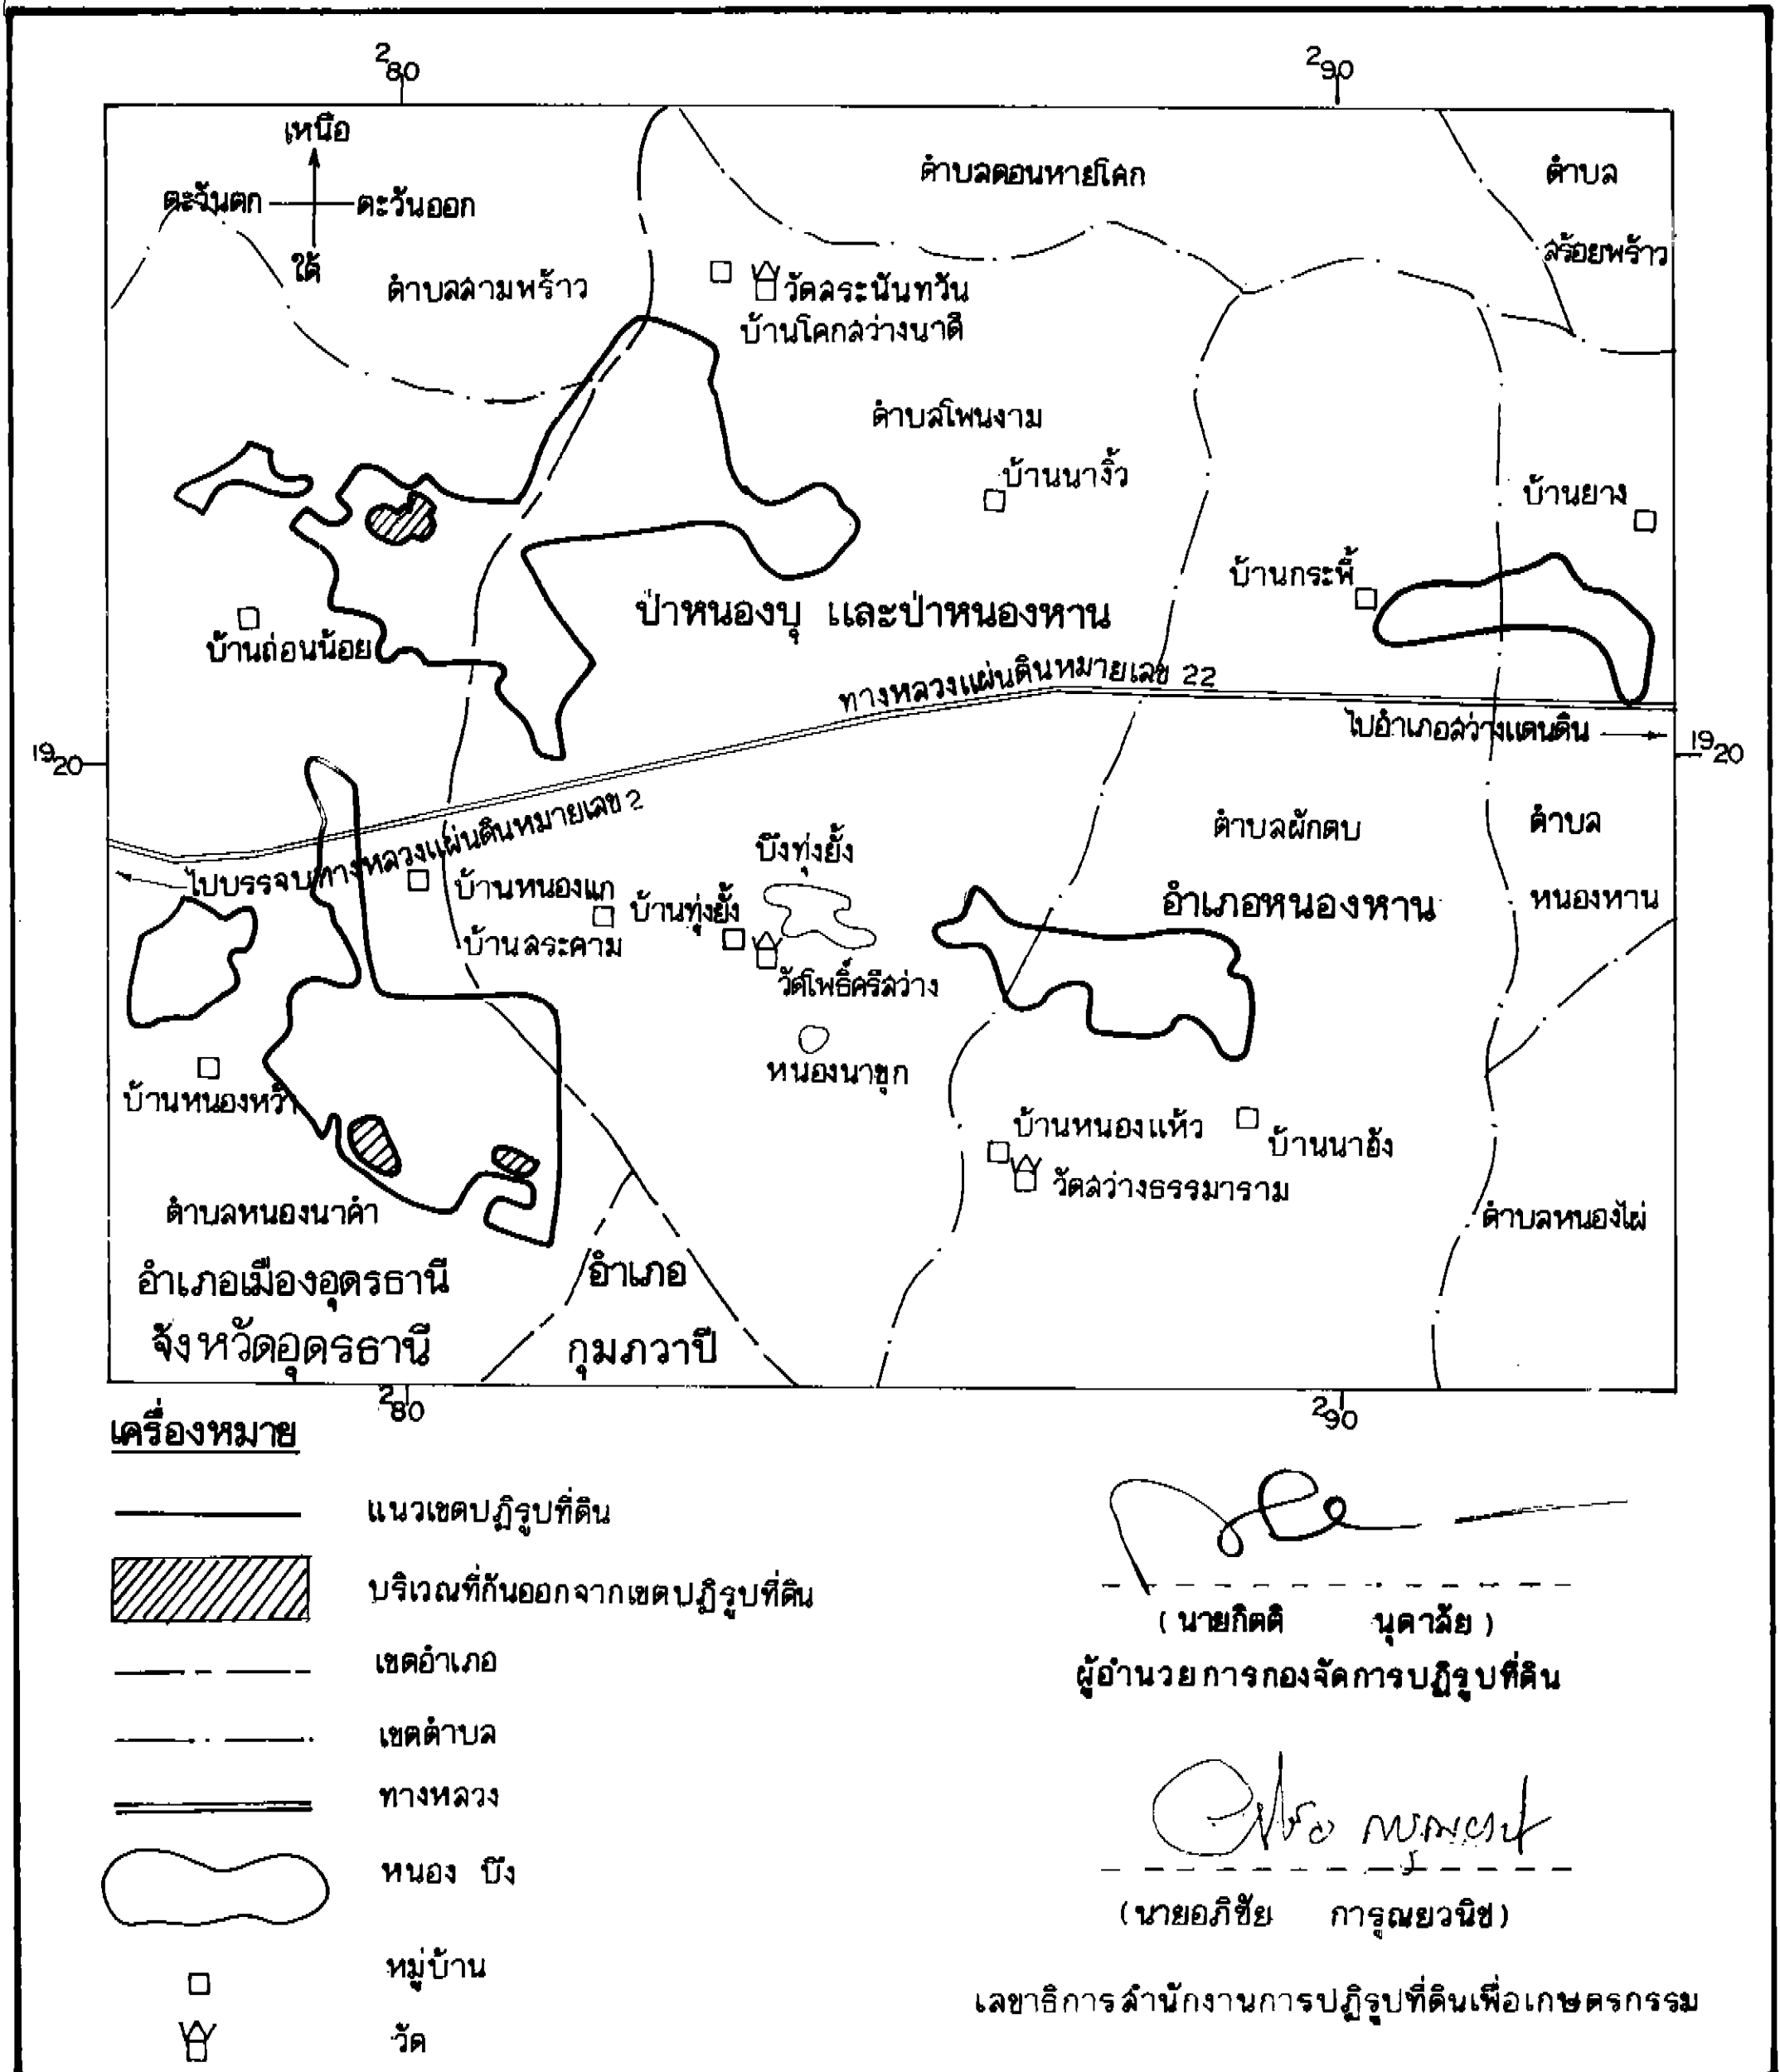 280 290
เหนือ
ตะวันตก ตะวันออก
ใต้
ตำบลดอนหายโศก
ตำบล
สร้อยพร้าว
ตำบลสามพร้าว
วัดสระนันทวัน
บ้านโคกสว่างนาดี
ตำบลโพนงาม
บ้านนางิ้ว
บ้านยาง
บ้านกระพี้
ป่าหนองบุ และป่าหนองหาน
บ้านถ่อนน้อย
ทางหลวงแผ่นดินหมายเลข 22
ไปอำเภอสว่างแดนดิน
1920 1920
ไปบรรจบทางหลวงแผ่นดินหมายเลข 2
ตำบลผักตบ
ตำบล
หนองหาน
บึงทุ่งยั้ง
บ้านหนองแก
บ้านทุ่งยั้ง
อำเภอหนองหาน
บ้านสระคาม
วัดโพธิ์ศรีสว่าง
หนองนาขุก
บ้านหนองหว้า
บ้านหนองแห้ว
บ้านนาฮัง
วัดสว่างธรรมาราม
ตำบลหนองนาคำ
ตำบลหนองไผ่
อำเภอเมืองอุดรธานี
อำเภอ
จังหวัดอุดรธานี
กุมภวาปี
280 290
เครื่องหมาย
แนวเขตปฏิรูปที่ดิน
บริเวณที่กันออกจากเขตปฏิรูปที่ดิน
เขตอำเภอ
เขตตำบล
ทางหลวง
หนอง บึง
หมู่บ้าน
วัด
(นายกิตติ นุตาลัย)
ผู้อำนวยการกองจัดการปฏิรูปที่ดิน
(นายอภิชัย การุณยวนิช)
เลขาธิการสำนักงานการปฏิรูปที่ดินเพื่อเกษตรกรรม